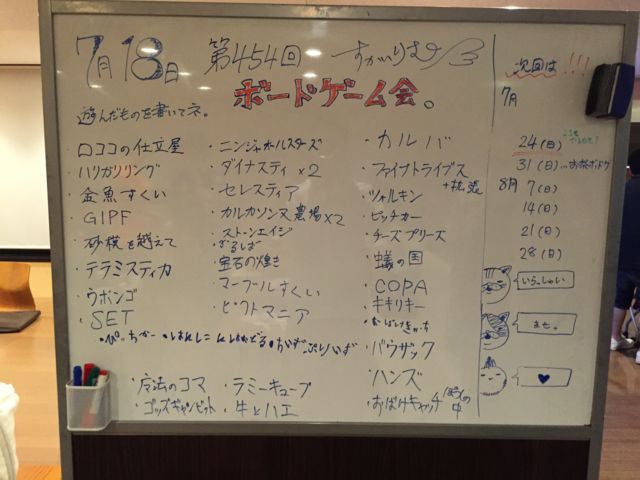 7月18日 第454回 すかいりむ
ボードゲーム会。
遊んだものを書いてネ。
・ロココの仕立屋
・ハリガリリング
・金魚すくい
・GIPF
・砂漠を越えて
・テラミスティカ
・ウボンゴ
・SET
・ニンジャオールスターズ
・ダイナスティ ×2
・セレスティア
・カルカソンヌ農場×2
・ストーンエイジ
・宝石の煌き
・マーブルすくい
・ピクトマニア
・カルバ
・ファイブトライブス
+拡張
・ツォルキン
・ピッチカー
・チーズプリーズ
・蟻の国
・COPA
・キキリキー
・おばけきゃっち
・パウザック
・ハンズ
・おばけキャッチ
・魔法のコマ
・ゴッズギャンビット
・ラミーキューブ
・牛とハエ
次回は!!!
7月
24(日)
31(日)
8月 7(日)
14(日)
21(日)
28(日)
いらっしゃい
ませ。
♥